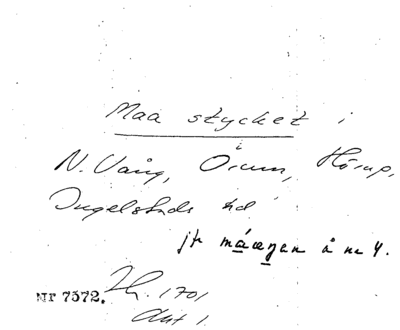 Maa stycket i
N. Vång, Örum, Hörup,
Ingelstads hd
jfr måagen å nr 4.
Nr 7572. Lh. 1701
Akt 1.